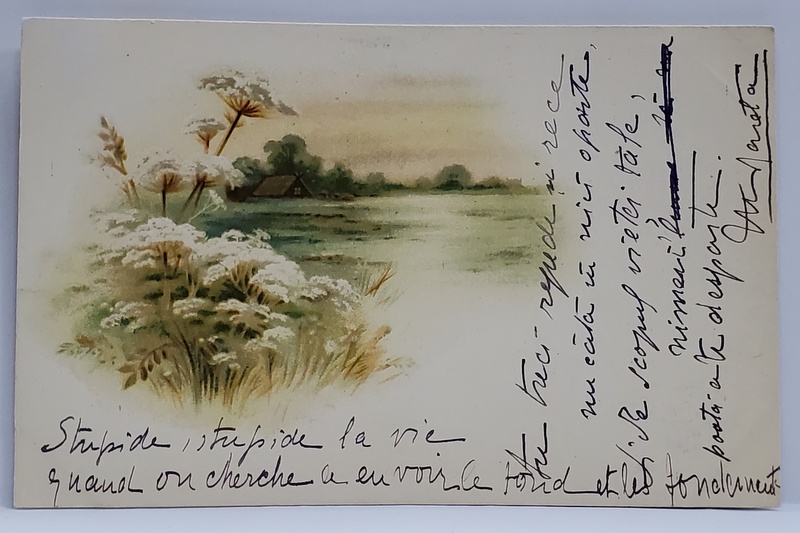 Stupide, stupide la vie
quand on cherche a en voir le fond et les fondements
Tu treci repede si rece
nu căta în nici o parte,
Și de scopul vieței tale,
nimeni
poată a te desparte.